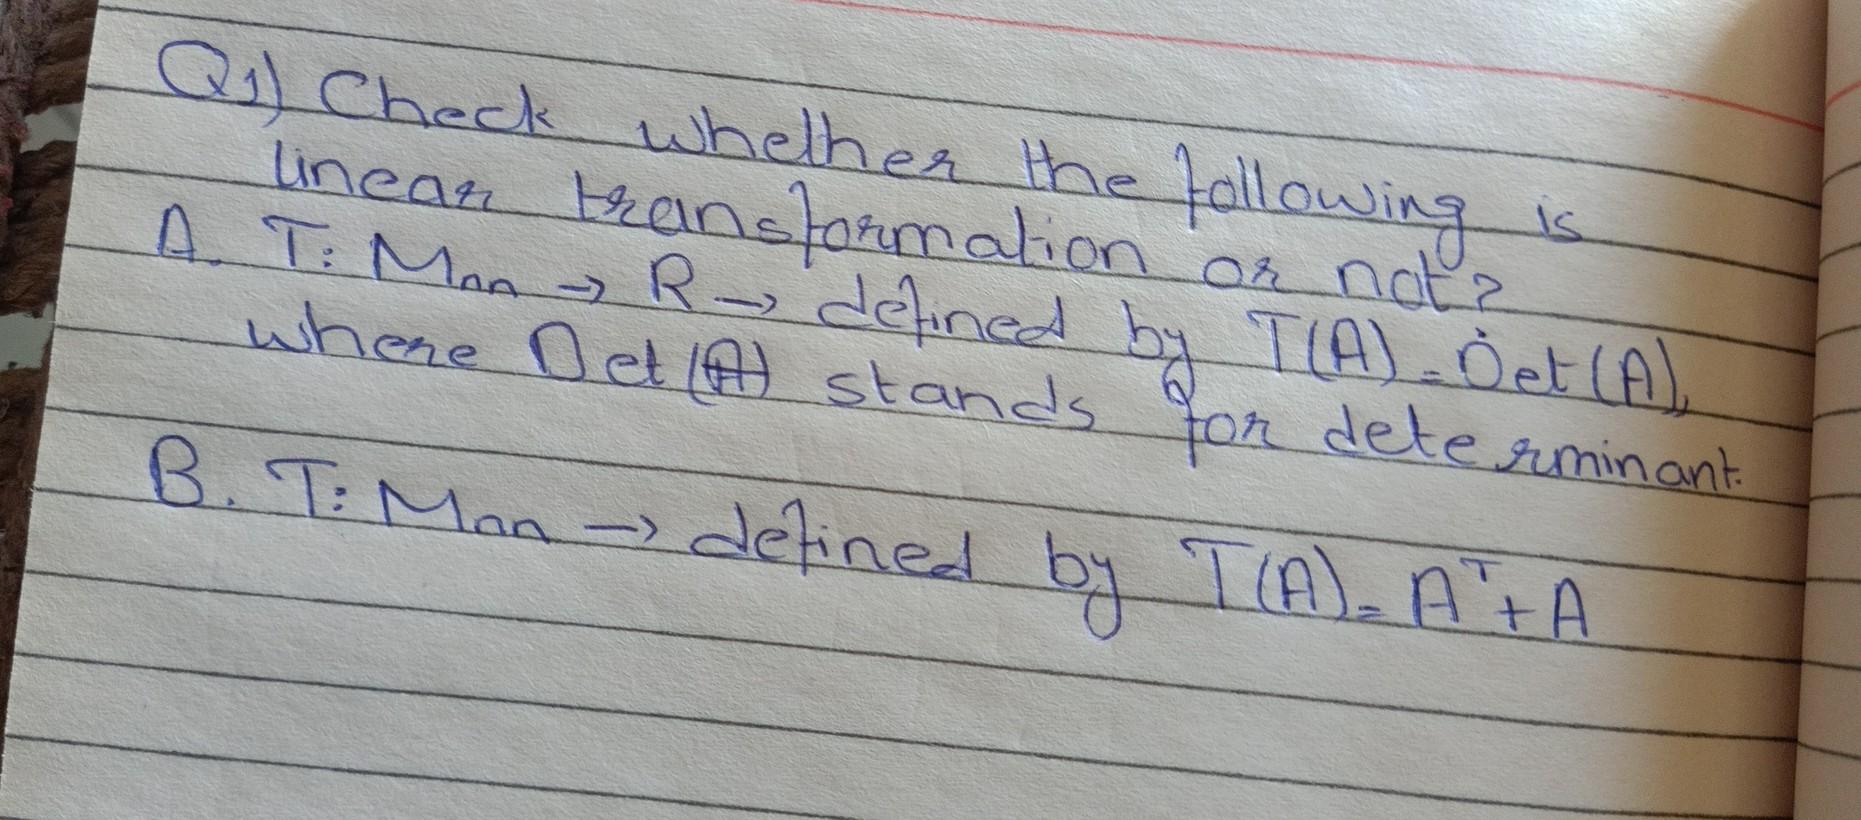 Q1) Check whether the following is
linear transformation or not?
A. T: Mnn → R → defined by T(A) = Det(A),
where Det(A) stands for determinant.
B. T: Mnn → defined by T(A) = Aᵀ + A